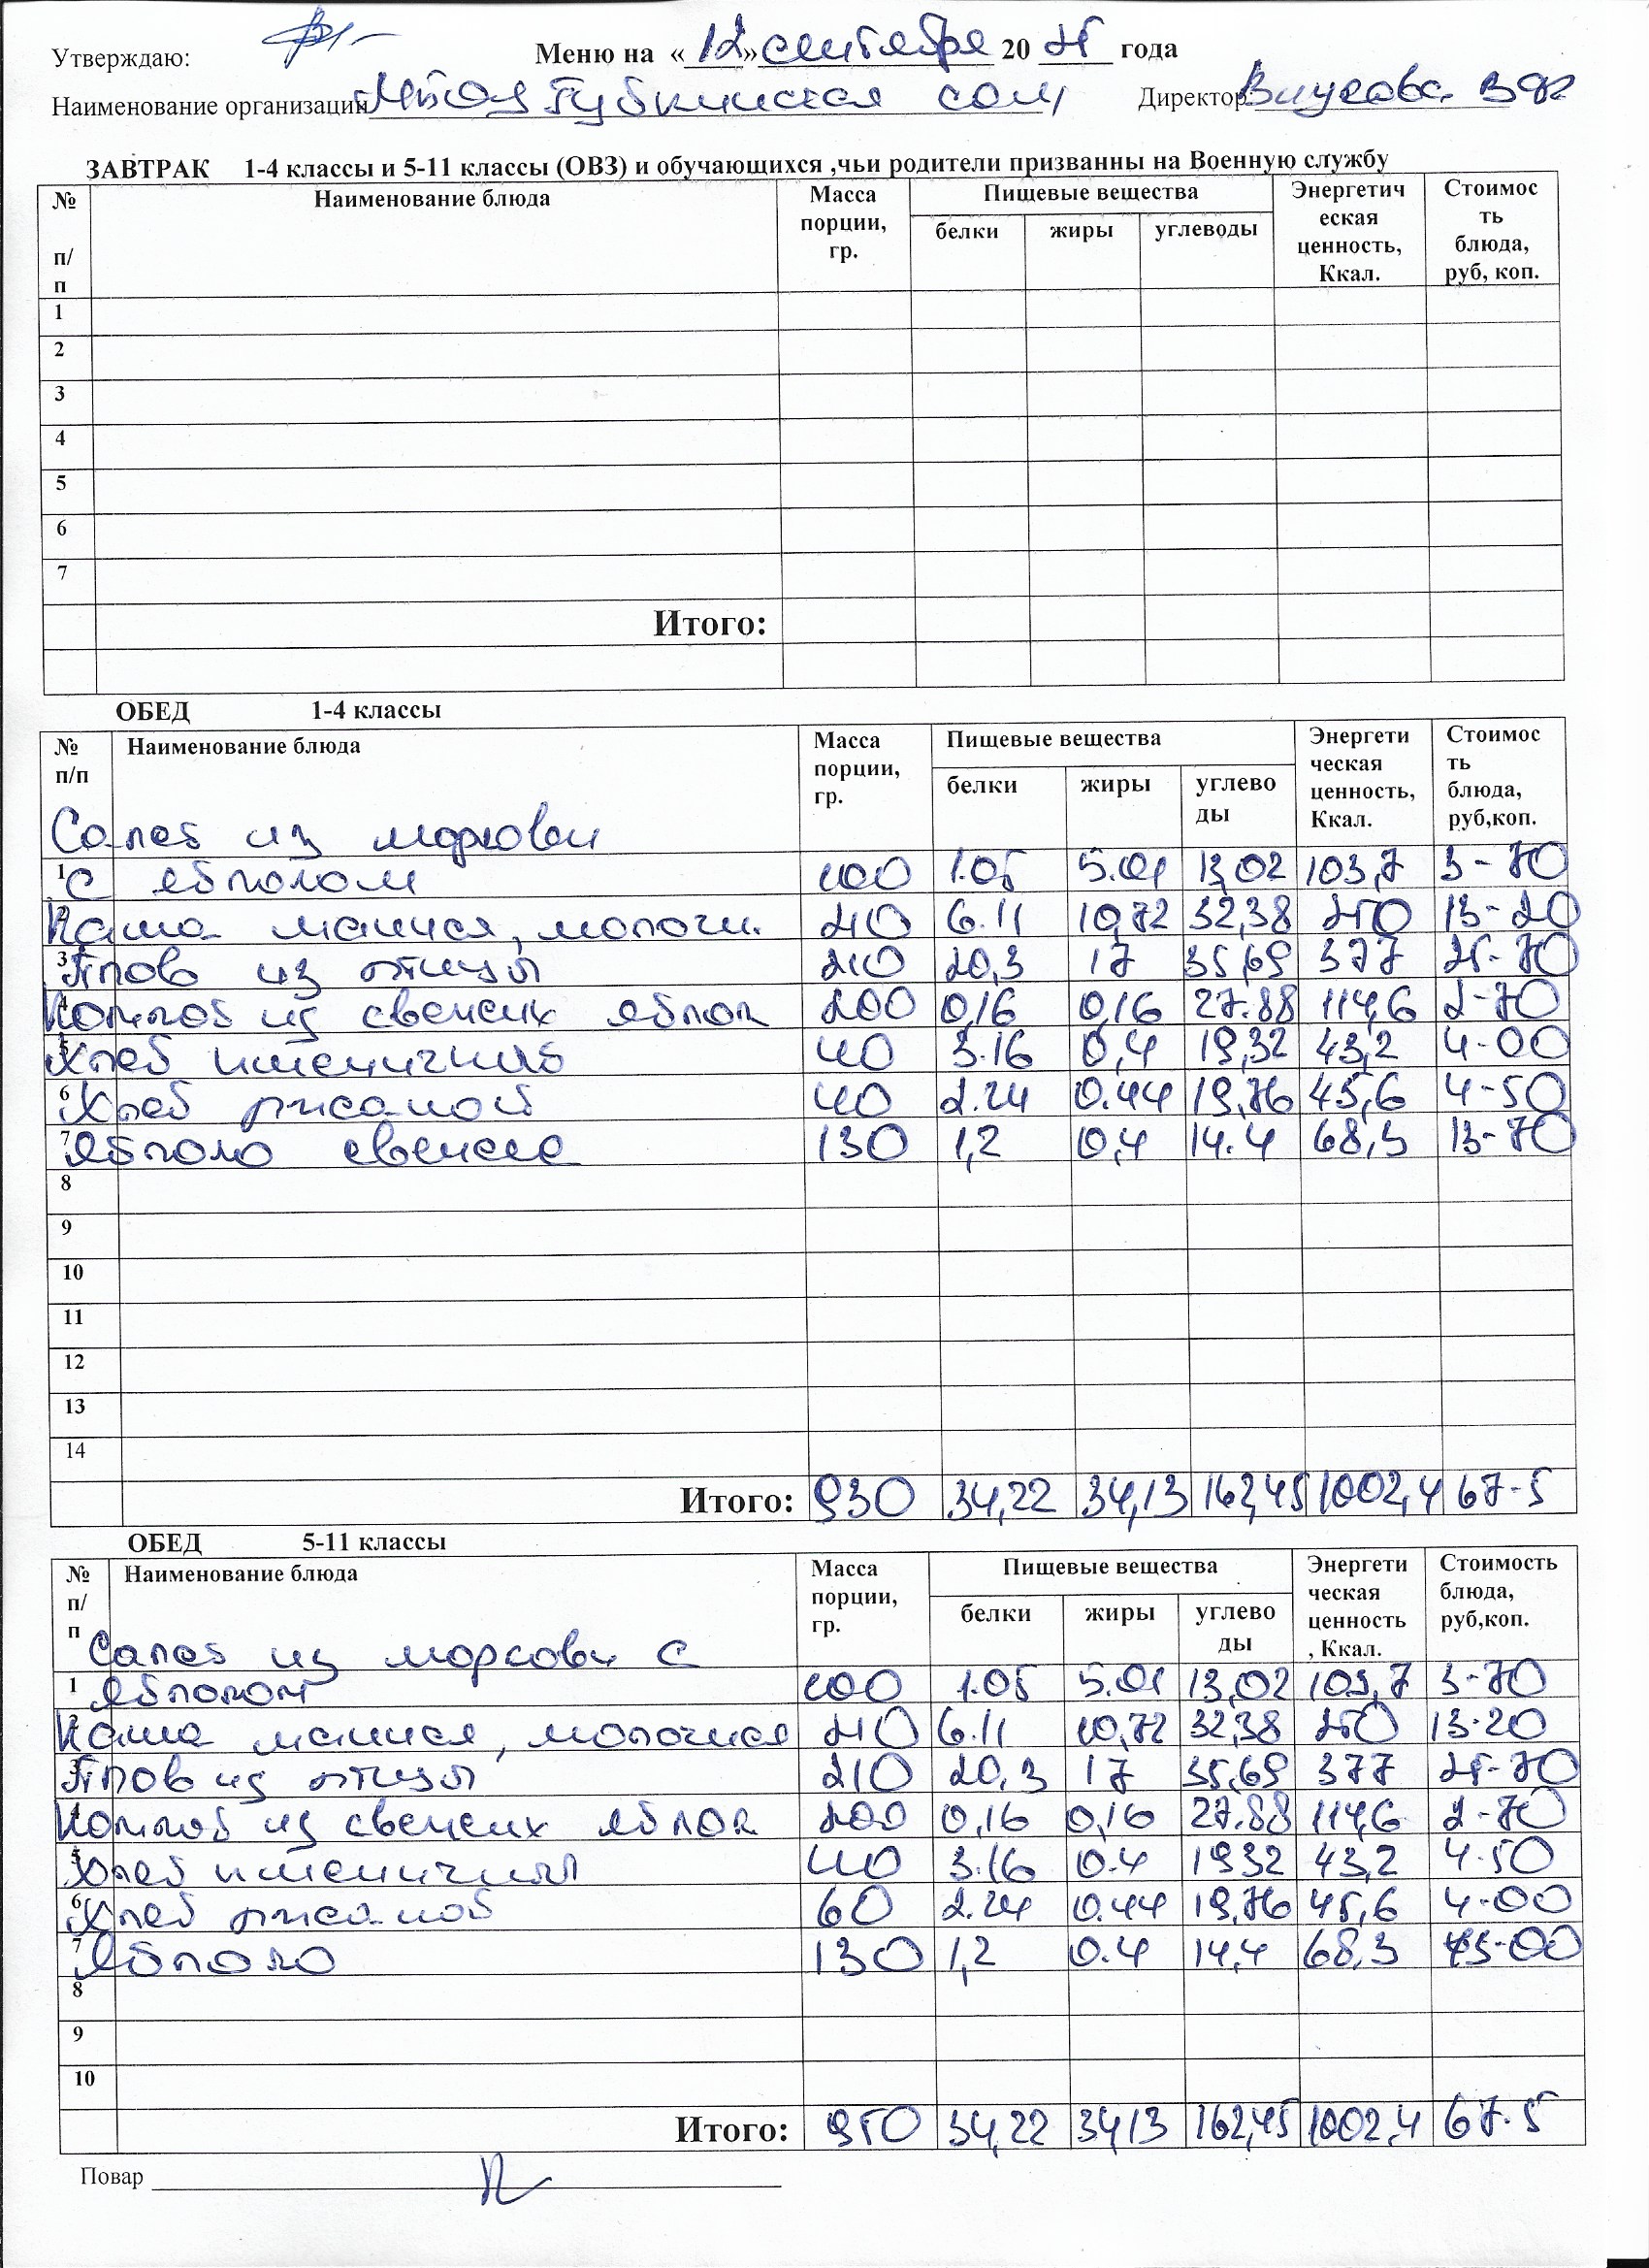 Утверждаю: Меню на «12» сентября 20 25 года
Наименование организации МБОУ Губкинская сош, Директор
ЗАВТРАК 1-4 классы и 5-11 классы (ОВЗ) и обучающихся ,чьи родители призванны на Военную службу
№ п/п Наименование блюда Масса порции, гр. Пищевые вещества Энергетическая ценность, Ккал. Стоимость блюда, руб, коп.
белки жиры углеводы
1
2
3
4
5
6
7
Итого:
ОБЕД 1-4 классы
№ п/п Наименование блюда Масса порции, гр. Пищевые вещества Энергетическая ценность, Ккал. Стоимость блюда, руб,коп.
белки жиры углеводы
Салат из моркови
1 с яблоком 100 1.05 5.01 13,02 103,7 3-70
2 Каша манная, молочн. 210 6.11 10,72 32,38 250 13-20
3 Плов из птицы 210 20,3 17 35,69 377 25-70
4 Компот из свежих яблок 200 0,16 0,16 27.88 114,6 2-70
5 Хлеб пшеничный 40 3.16 0,4 19,32 43,2 4-00
6 Хлеб ржаной 40 2.24 0.44 19,76 45,6 4-50
7 Яблоко свежее 130 1,2 0,4 14.4 68,3 13-70
8
9
10
11
12
13
14
Итого: 930 34,22 34,13 162,45 1002,4 67-5
ОБЕД 5-11 классы
№ п/п Наименование блюда Масса порции, гр. Пищевые вещества Энергетическая ценность, Ккал. Стоимость блюда, руб,коп.
белки жиры углеводы
Салат из моркови с
1 яблоком 100 1.05 5.01 13,02 103,7 3-70
2 Каша манная, молочная 210 6.11 10,72 32,38 250 13-20
3 Плов из птицы 210 20,3 17 35,69 377 25-70
4 Компот из свежих яблок 200 0,16 0,16 27.88 114,6 2-70
5 Хлеб пшеничный 40 3.16 0.4 1932 43,2 4-50
6 Хлеб ржаной 60 2.24 0.44 19,76 45,6 4-00
7 Яблоко 130 1,2 0.4 14,4 68,3 13-00
8
9
10
Итого: 950 34,22 34,13 162,45 1002,4 67-5
Повар